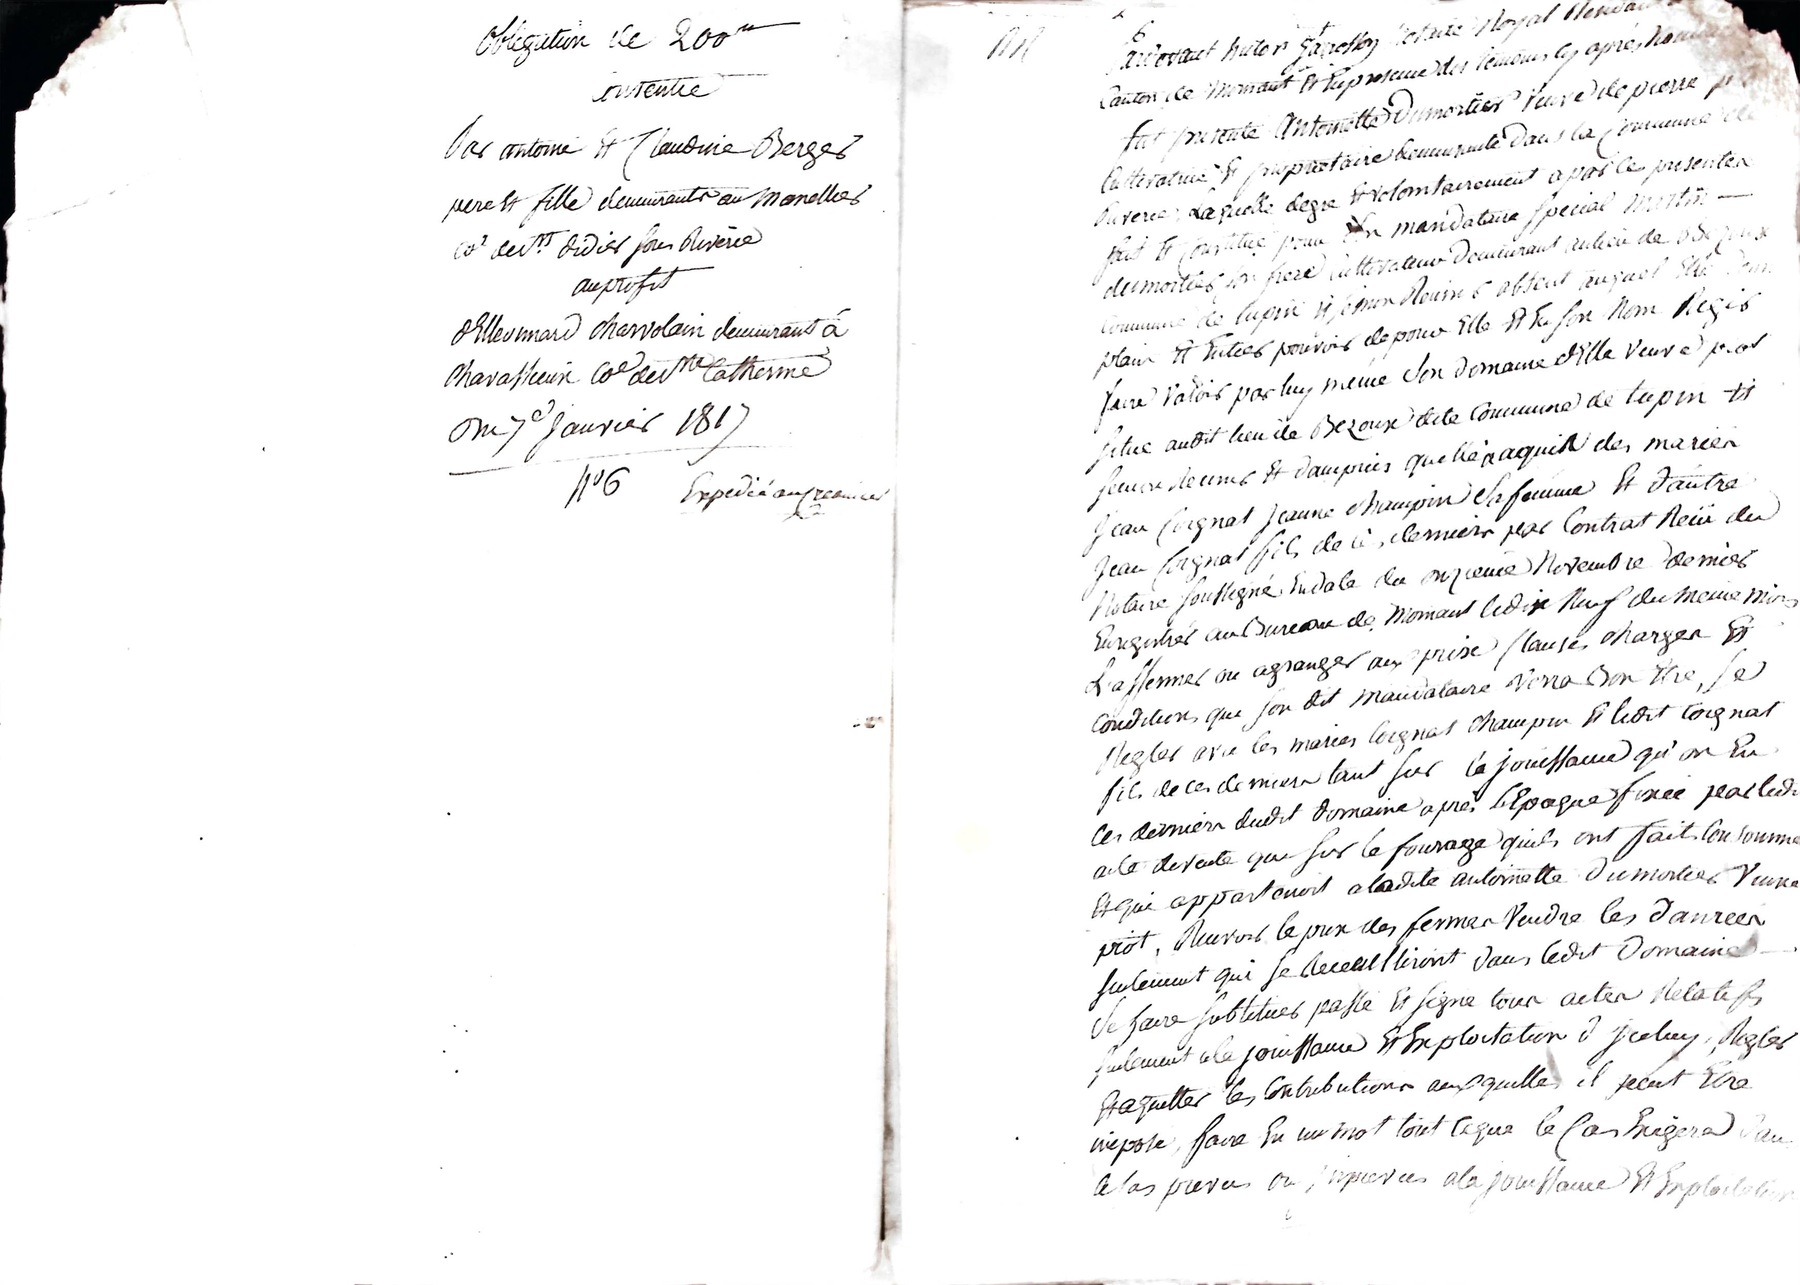 Obligation de 200 ₶
consentie
Par antoine et Claudine Berger
pere et fille demeurants au Monellier
coe de st didier sous Riverie
au profit
d'Elleonnard charvolain demeurant à
chavassieux coe de ste Catherine
Du 7e janvier 1817
N° 6 Expedié au creancier
Pardevant notaire Royal
canton de Mornant et En presence des temoins cy aprés Nommés
fut presente Antoinette Dumortier veuve de pierre
Cultivatrice et propriétaire demeurante dans la Commune de
Riverie, Laquelle de gre et volontairement a par ce presenter
fait et Constitué pour son mandataire special
dumortier son frere Cultivateur demeurant au lieu de Bezoux
commune de tupin et semons absent auquel Elle donne
plain et Entier pouvoir de pour Elle et En son Nom Regir
faire valoir par luy même Son domaine d'Elle veuve piot
situe audit lieu de Bezoux dite Commune de tupin et
semons et dampuis quelle a aquis des mariés
Jean Coignat Jeanne champin Sa femme et d'autre
Jean Coignat fils de ces derniers par Contrat Reçu du
Notaire soussigné En date du onzieme Novembre dernier
Enregistré au Bureau de Mornant le dix Neuf du meme mois
L'affermer ou agranger aux prix Clauses charges et
conditions que son dit mandataire verra Bon Etre, se
Regler avec les mariés Coignat champin et ledit Coignat
fils de ces derniers tant sur la jouissance qu'on Eu
ces derniers dudit domaine apres L'Epoque fixée par ledit
acte de vente que sur le fourage quils ont fait Consommer
et qui appartenoit a ladite antoinette Dumortier veuve
piot, Recevoir le prix des fermes vendre les danrées
seulement qui se Recuilliront dans ledit Domaine
Se faire subtituer passé et signe tous actes Relatifs
seulement a la jouissance et Exploitation d'iceluy, Regler
et aquitter les Contributions auxquelles il peut Etre
imposé, faire En un mot tout ce que le Cas Exigera
le cas prevus ou imprevus a la jouissance et Exploitation